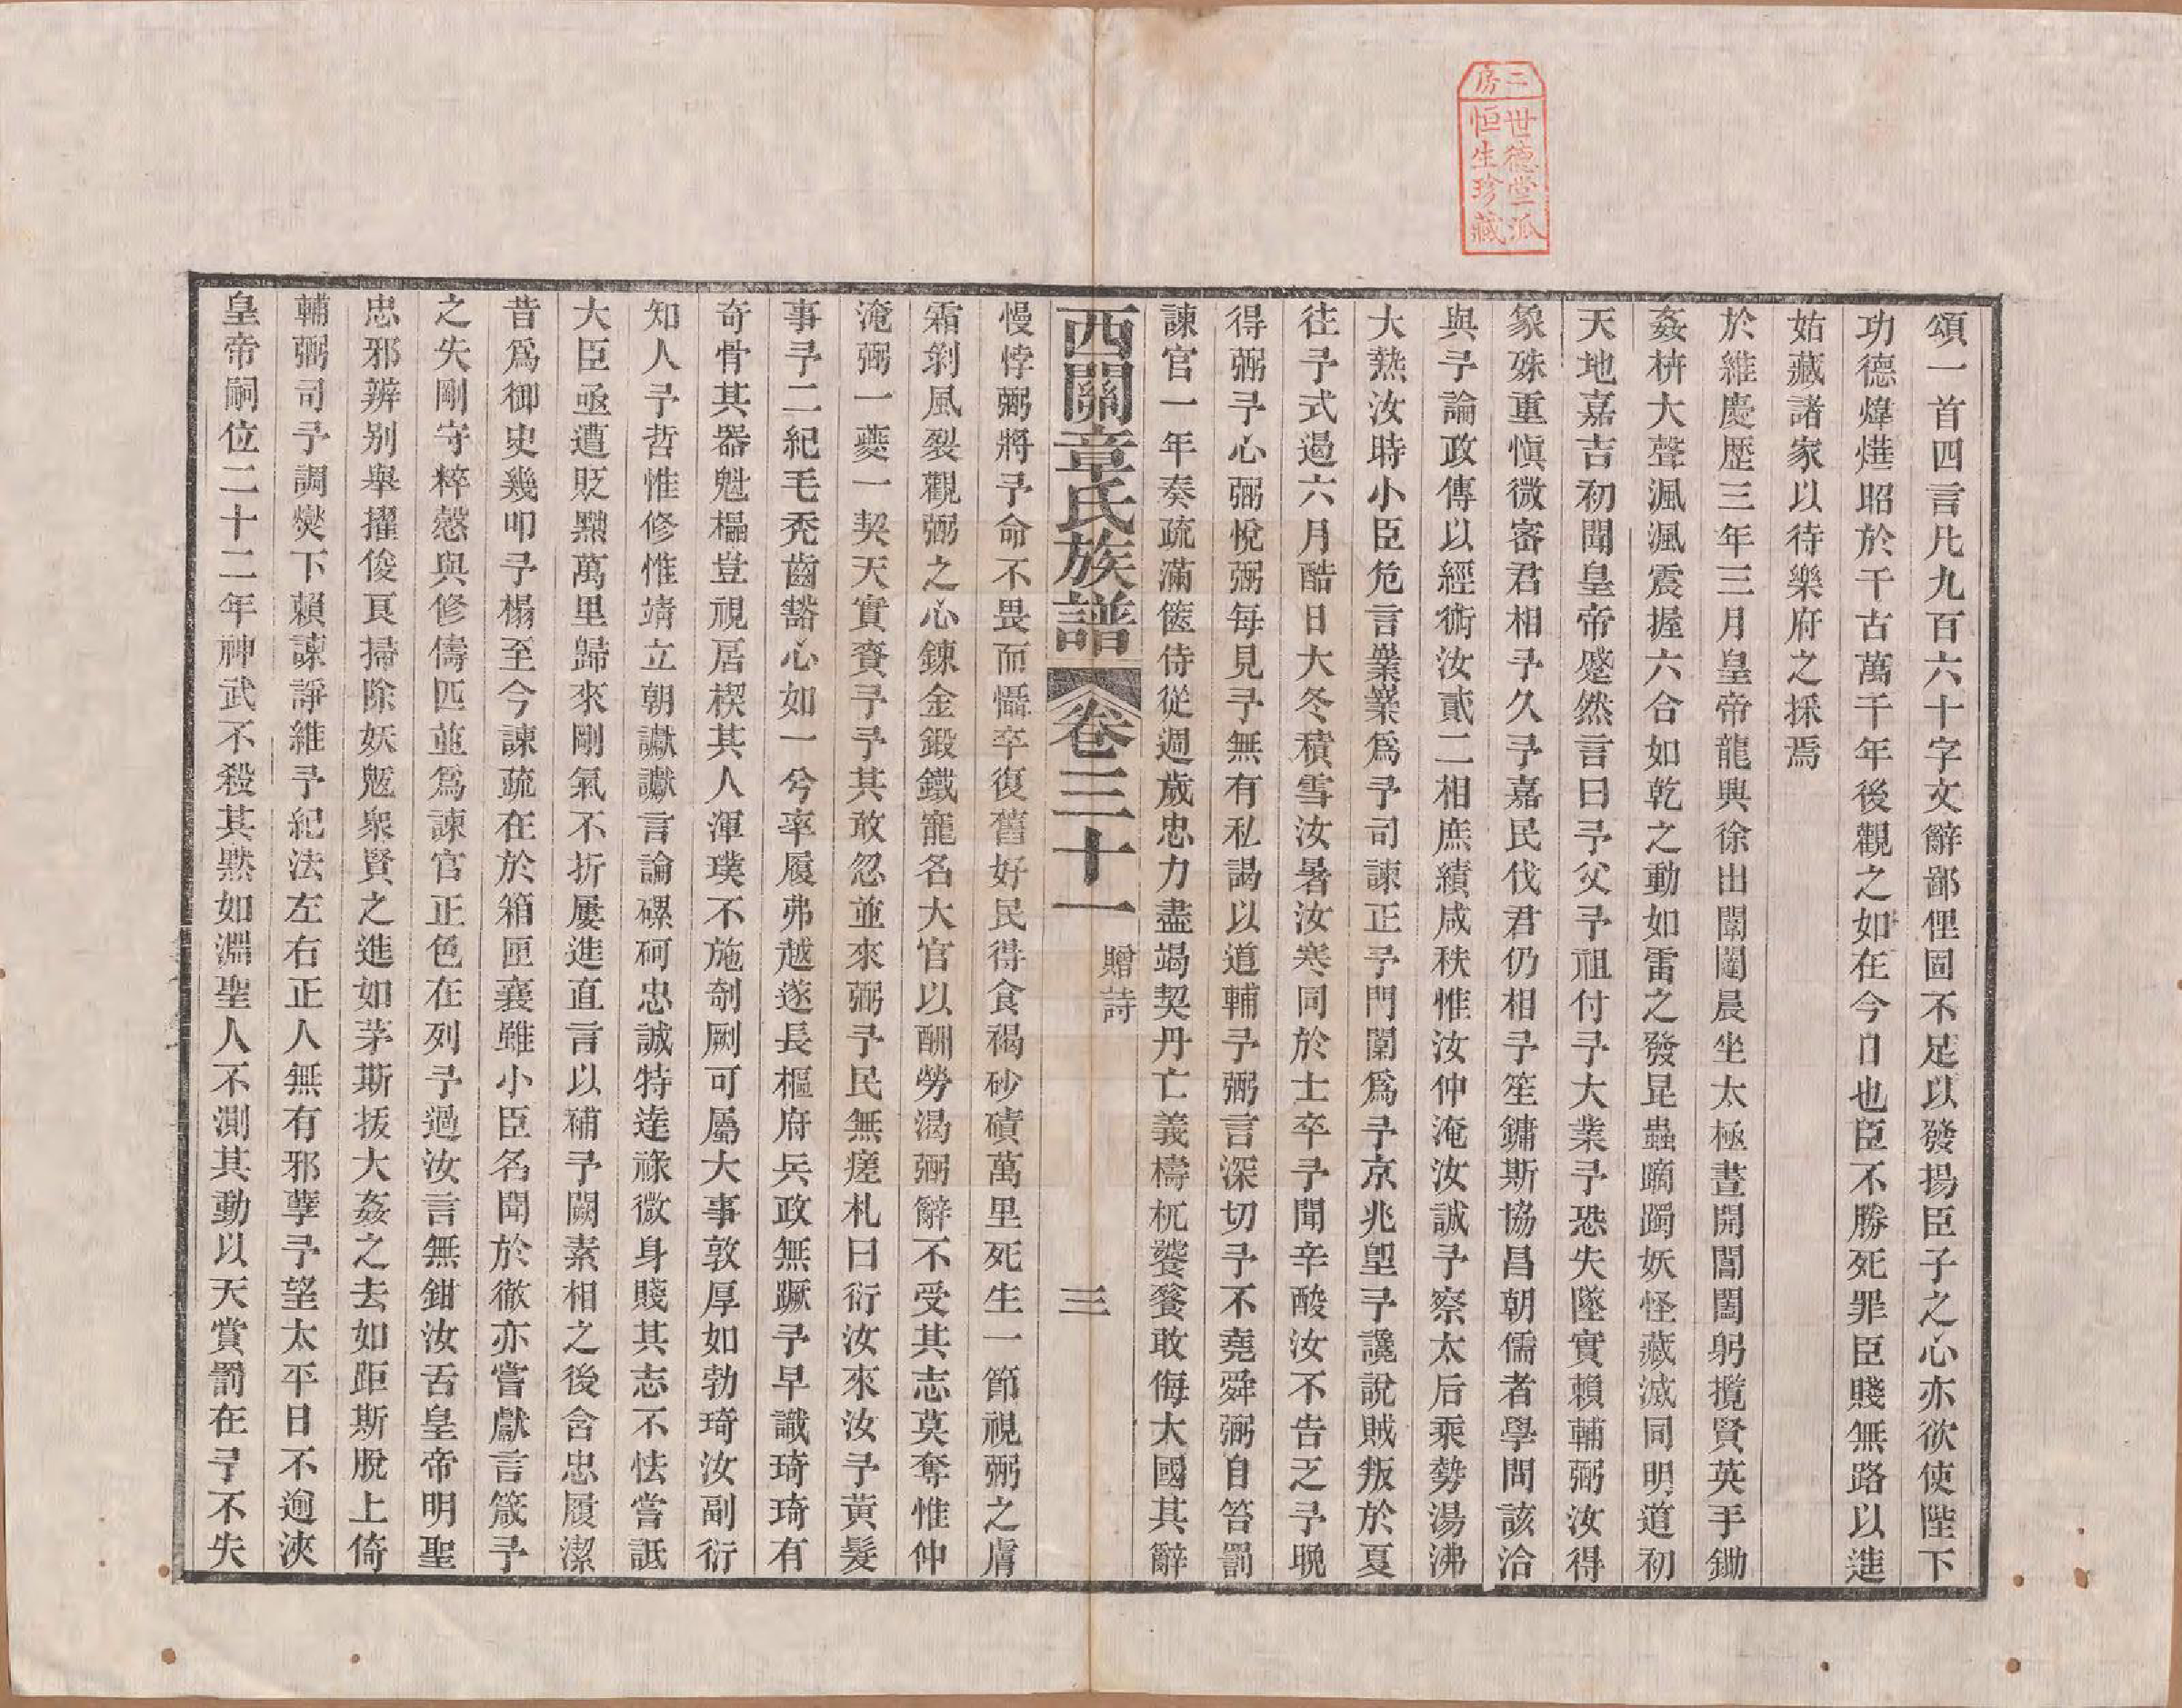 二房
世德堂派
恒生珍藏
頌一首四言凡九百六十字文辭鄙俚固不足以發揚臣子之心亦欲使陛下
功德煒燁昭於千古萬千年後觀之如在今日也臣不勝死罪臣賤無路以進
姑藏諸家以待樂府之採焉
於維慶歷三年三月皇帝龍興徐出闈闥晨坐太極晝開閶闔躬攬賢英手鋤
姦枿大聲渢渢震握六合如乾之動如雷之發昆蟲蹢躅妖怪藏滅同明道初
天地嘉吉初聞皇帝蹙然言曰予父予祖付予大業予恐失墜實賴輔弼汝得
象殊重慎微密君相予久予嘉民伐君仍相予笙鏞斯協昌朝儒者學問該洽
與予論政傳以經術汝貳二相庶績咸秩惟汝仲淹汝誠予察太后乘勢湯沸
大熱汝時小臣危言嶪嶪爲予司諫正予門闑爲予京兆堲予讒說賊叛於夏
往予式遏六月酷日大冬積雪汝暑汝寒同於士卒予聞辛酸汝不告乏予晚
得弼予心弼悅弼每見予無有私謁以道輔予弼言深切予不堯舜弼自笞罰
諫官一年奏疏滿篋侍從週歲忠力盡竭契丹亡義檮杌饕餮敢侮大國其辭
西關章氏族譜 卷三十一 贈詩 三
慢悖弼將予命不畏而懾卒復舊好民得食褐砂磧萬里死生一節視弼之膚
霜剝風裂觀弼之心鍊金鍛鐵寵名大官以酬勞渴弼辭不受其志莫奪惟仲
淹弼一夔一契天實賚予予其敢忽並來弼予民無瘥札曰衍汝來汝予黃髮
事予二紀毛禿齒豁心如一兮率履弗越遂長樞府兵政無蹶予早識琦琦有
奇骨其器魁櫑豈視居楔其人渾璞不施剞劂可屬大事敦厚如勃琦汝副衍
知人予哲惟修惟靖立朝讞讞言論磥砢忠誠特達祿微身賤其志不怯嘗詆
大臣亟遭貶黜萬里歸來剛氣不折屢進直言以補予闕素相之後含忠履潔
昔爲御史幾叩予榻至今諫疏在於箱匣襄雖小臣名聞於徹亦嘗獻言箴予
之失剛守粹慤與修儔匹並爲諫官正色在列予過汝言無鉗汝舌皇帝明聖
忠邪辨别舉擢俊良掃除妖魃衆賢之進如茅斯拔大姦之去如距斯脫上倚
輔弼司予調燮下賴諫諍維予紀法左右正人無有邪孽予望太平日不逾浹
皇帝嗣位二十二年神武不殺其黙如淵聖人不測其動以天賞罰在予不失